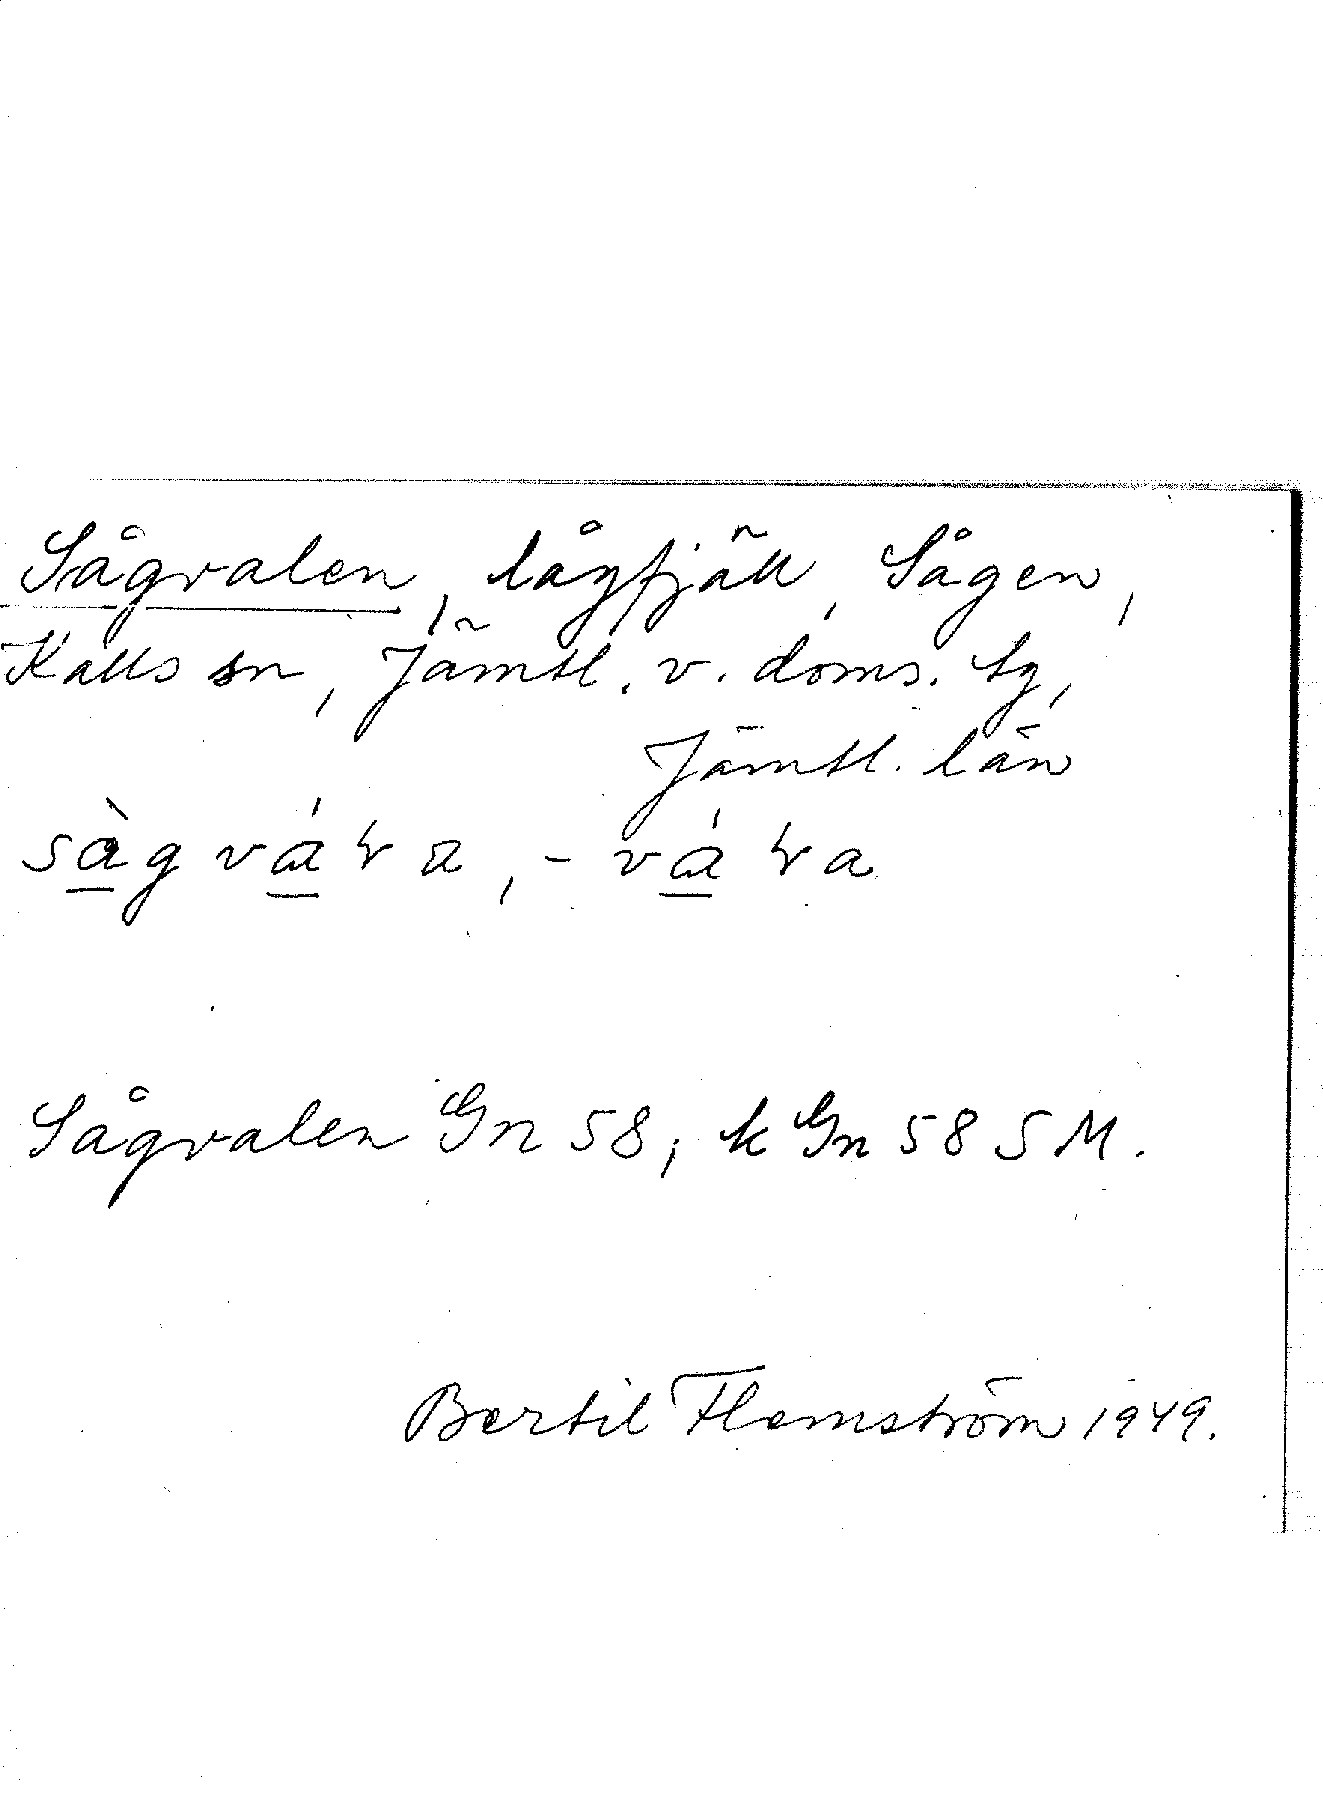 Sågvalen, lågfjäll, Sågen,
Kalls sn, Jämtl. v. doms. tg,
Jämtl. län
Sågvalen Gn 58; k Gn 58 SM.
Bertil Flemström 1949.